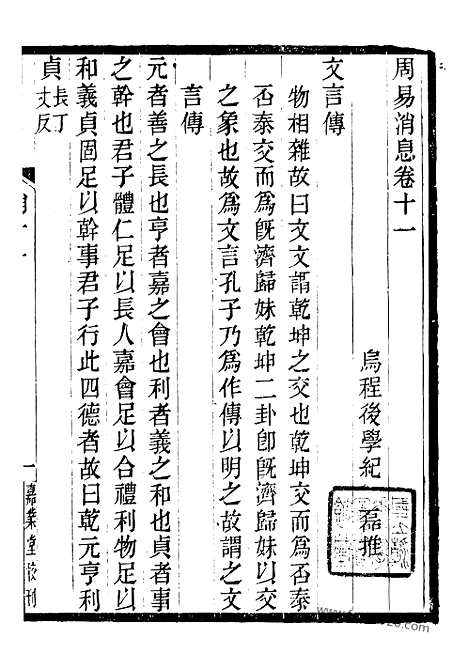 周易消息卷十一
烏程後學紀磊推
文言傳
物相雜故曰文文謂乾坤之交也乾坤交而為否泰
否泰交而為旣濟歸妹乾坤二卦卽旣濟歸妹以文
之象也故為文言孔子乃為作傳以明之故謂之文
言傳
元者善之長也亨者嘉之會也利者義之和也貞者事
之幹也君子體仁足以長人嘉會足以合禮利物足以
和義貞固足以幹事君子行此四德者故曰乾元亨利
貞長丁丈反
一
嘉業堂校刊